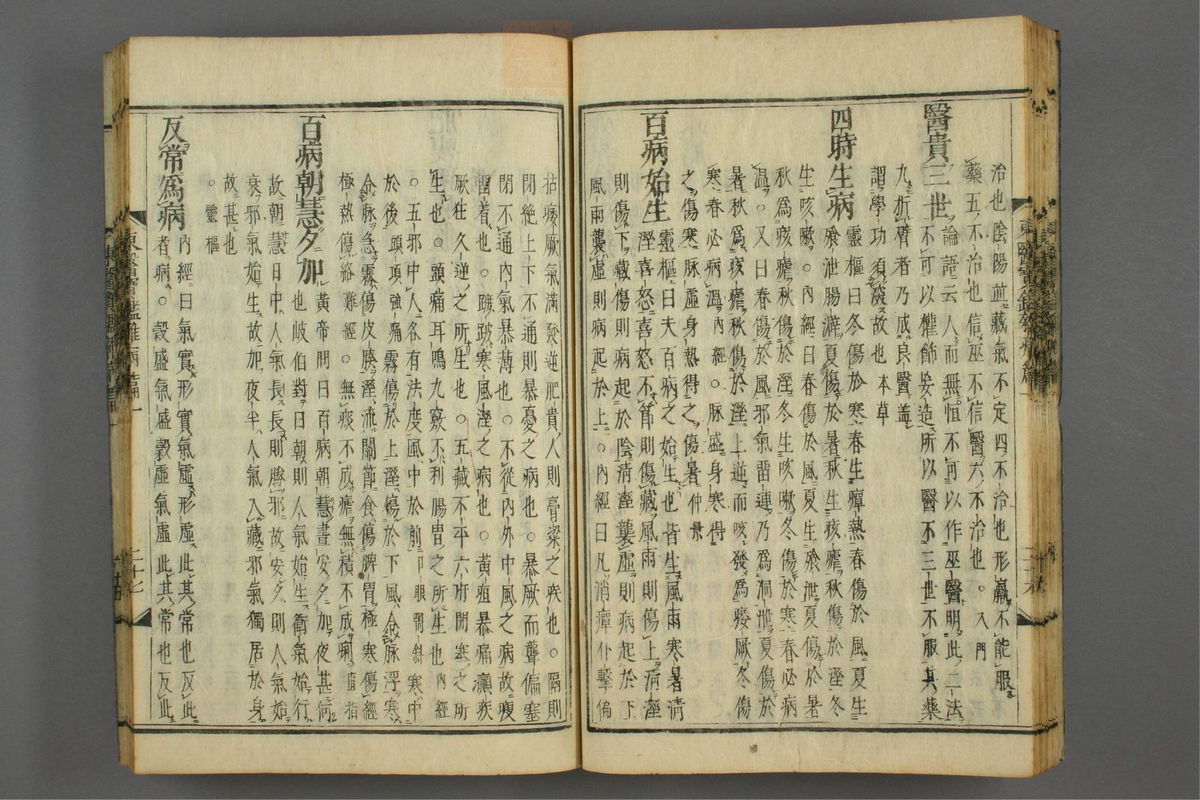 治也陰陽並藏氣不定四不治也形羸不能服
藥五不治也信巫不信醫六不治也。入門
醫貴三世 論語云人而無恒不可以作巫醫明此二法
不可以權飾妄造所以醫不三世不服其藥
九折臂者乃成良醫蓋
謂學功須深故也本草
四時生病 靈樞曰冬傷於寒春生癉熱春傷於風夏生
飱泄腸澼夏傷於暑秋生痎瘧秋傷於溼冬
生咳嗽。內經曰春傷於風夏生飱泄夏傷於暑
秋爲痎瘧秋傷於溼冬生咳嗽冬傷於寒春必病
溫。又曰春傷於風邪氣留連乃爲洞泄夏傷於
暑秋爲痎瘧秋傷於溼上逆而咳發爲痿厥冬傷
寒春必病溫內經。脉盛身寒得
之傷寒脉虛身熱得之傷暑仲景
百病始生 靈樞曰夫百病之始生也皆生風雨寒暑清
溼喜怒喜怒不節則傷藏風雨則傷上清溼
則傷下藏傷則病起於陰清溼襲虛則病起於下
風雨襲虛則病起於上。內經曰凡消癉仆擊偏
枯痿厥氣滿發逆肥貴人則膏粱之疾也。隔則
閉絶上下不通則暴憂之病也。暴厥而聾偏塞
閉不通內氣暴薄也。不從內外中風之病故瘦
留着也。蹠跛寒風溼之病也。黃疸暴痛癲疾
厥狂久逆之所生也。五藏不平六府閉塞之所
生也。頭痛耳鳴九竅不利腸胃之所生也內經
。五邪中人各有法度風中於前寒中
於後霧傷於上溼傷於下風令脉浮寒
令脉急霧傷皮腠溼流關節食傷脾胃極寒傷經
極熱傷絡難經。無痰不成瘧無積不成痢直指
百病朝慧夕加 黃帝問曰百病朝慧晝安夕加夜甚何
也岐伯對曰朝則人氣始生衛氣始行
故朝慧日中人氣長長則勝邪故安夕則人氣始
衰邪氣始生故加夜半人氣入藏邪氣獨居於身
故甚也
。靈樞
反常爲病 內經曰氣實形實氣虛形虛此其常也反此
者病。穀盛氣盛穀虛氣虛此其常也反此
東醫寶鑑雜病篇一